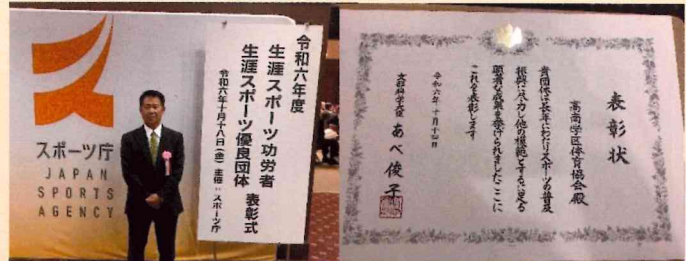 スポーツ庁
JAPAN
SPORTS
AGENCY
令和六年度
生涯スポーツ功労者
生涯スポーツ優良団体 表彰式
令和六年十月十八日(金) 主催:スポーツ庁
表彰状
高南学区体育協会殿
貴団体は長年にわたりスポーツの普及
振興に尽力し他の模範とするに足る
顕著な成果を挙げられましたここに
これを表彰します
令和六年十月十日
文部科学大臣 あべ俊子